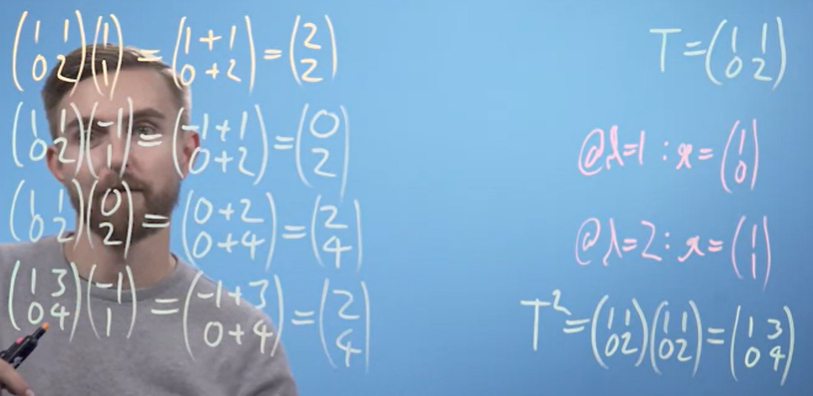 (1 1; 0 2)(1; 1) = (1+1; 0+2) = (2; 2)
(1 1; 0 2)(-1; 1) = (-1+1; 0+2) = (0; 2)
(1 1; 0 2)(0; 2) = (0+2; 0+4) = (2; 4)
(1 3; 0 4)(-1; 1) = (-1+3; 0+4) = (2; 4)
T = (1 1; 0 2)
@λ=1 : x = (1; 0)
@λ=2 : x = (1; 1)
T² = (1 1; 0 2)(1 1; 0 2) = (1 3; 0 4)